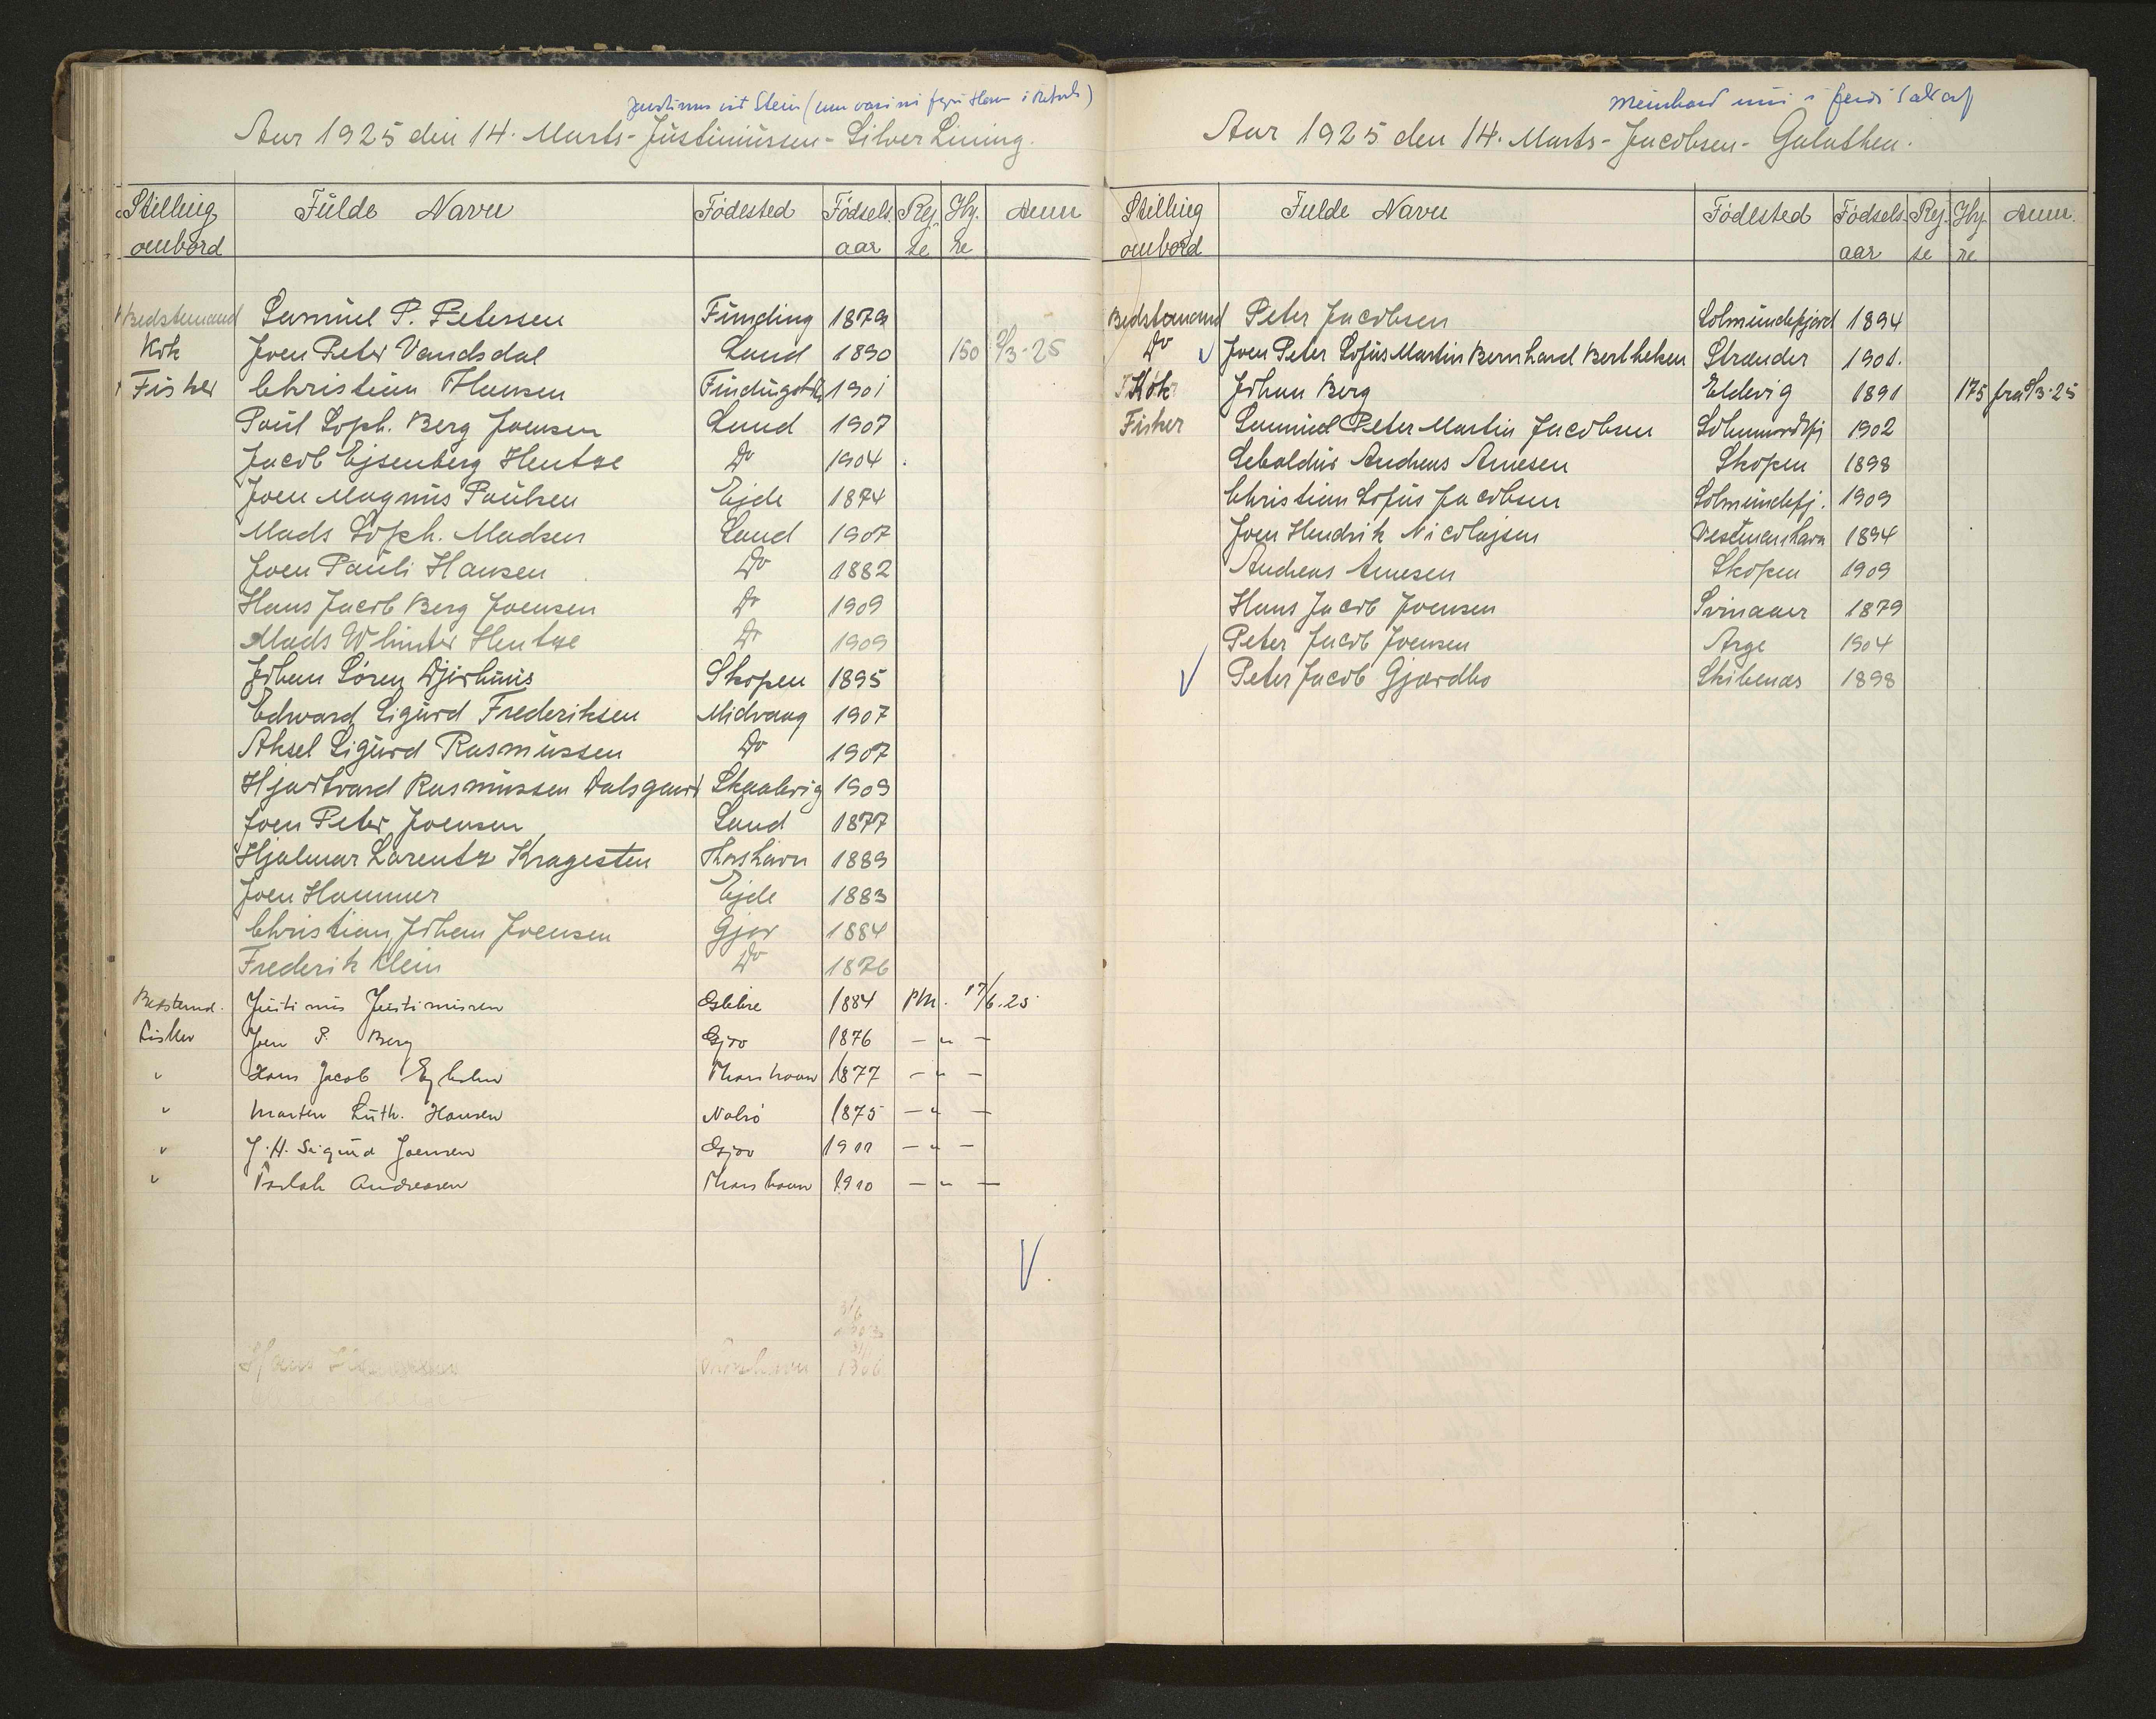 Justinus við Stein
Aar 1925 den 14. Marts - Justinussen - Silver Lining.
Stilling ombord | Fulde Navn | Fødested | Fødsels aar | Rej se | Hy. re | Anm
Bedstemand Samuel P. Petersen Funding 1879
Kok Joen Peter Vandsdal Sand 1890 150 3-25
Fisker Christian Hansen 1901
Poul Soph. Berg Joensen Sand 1907
Jacob Ejsenberg Hentze Do 1904
Joen Magnus Poulsen Ejde 1874
Mads Soph. Madsen Sand 1907
Joen Pauli Hansen Do 1882
Hans Jacob Berg Joensen Do 1909
Mads Whinter Hentze Do 1909
Johan Søren Djurhuus Skopen 1895
Edward Sigurd Frederiksen Midvaag 1907
Aksel Sigurd Rasmussen Do 1907
Hjartvard Rasmussen Dalsgaard Skaalevig 1909
Joen Peter Joensen Sand 1877
Hjalmar Larentz Kragesten Thorshavn 1889
Joen Hammer Ejde 1883
Christian Johan Joensen Gjov 1884
Frederik Klein Do 1876
Bedstemd. Justinus Justinussen 1884 PM. 17/6.25
Fisker Joen P. Berg Gjov 1876 - " -
" Hans Jacob Egholm Thorshavn 1877 - " -
" Morten Luth. Hansen Nolsø 1875 - " -
" J. H. Sigurd Joensen Gjov - " -
" Andreasen Thorshavn 1910 - " -
Hans
Meinhard
Aar 1925 den 14. Marts - Jacobsen - Galathea.
Stilling ombord | Fulde Navn | Fødested | Fødsels aar | Rej. se | Hy re | Anm.
Bedstemand Peter Jacobsen Solmundefjord 1894
Do Joen Peter Sofus Martin Bernhard Berthelsen Strænder 1901.
Kok Johan Berg Eldevig 1891 175 fra 3-25
Fisker Samuel Peter Martin Jacobsen 1902
Sebaldus Andreas Arnesen Skopen 1898
Christian Sofus Jacobsen Solmundefj. 1909
Joen Hendrik Nicolajsen Vestmanhavn 1894
Andreas Arnesen Skopen 1909
Hans Jacob Joensen Svinaaer 1879
Peter Jacob Joensen Arge 1904
Peter Jacob Gjærdbo Skibenæs 1898